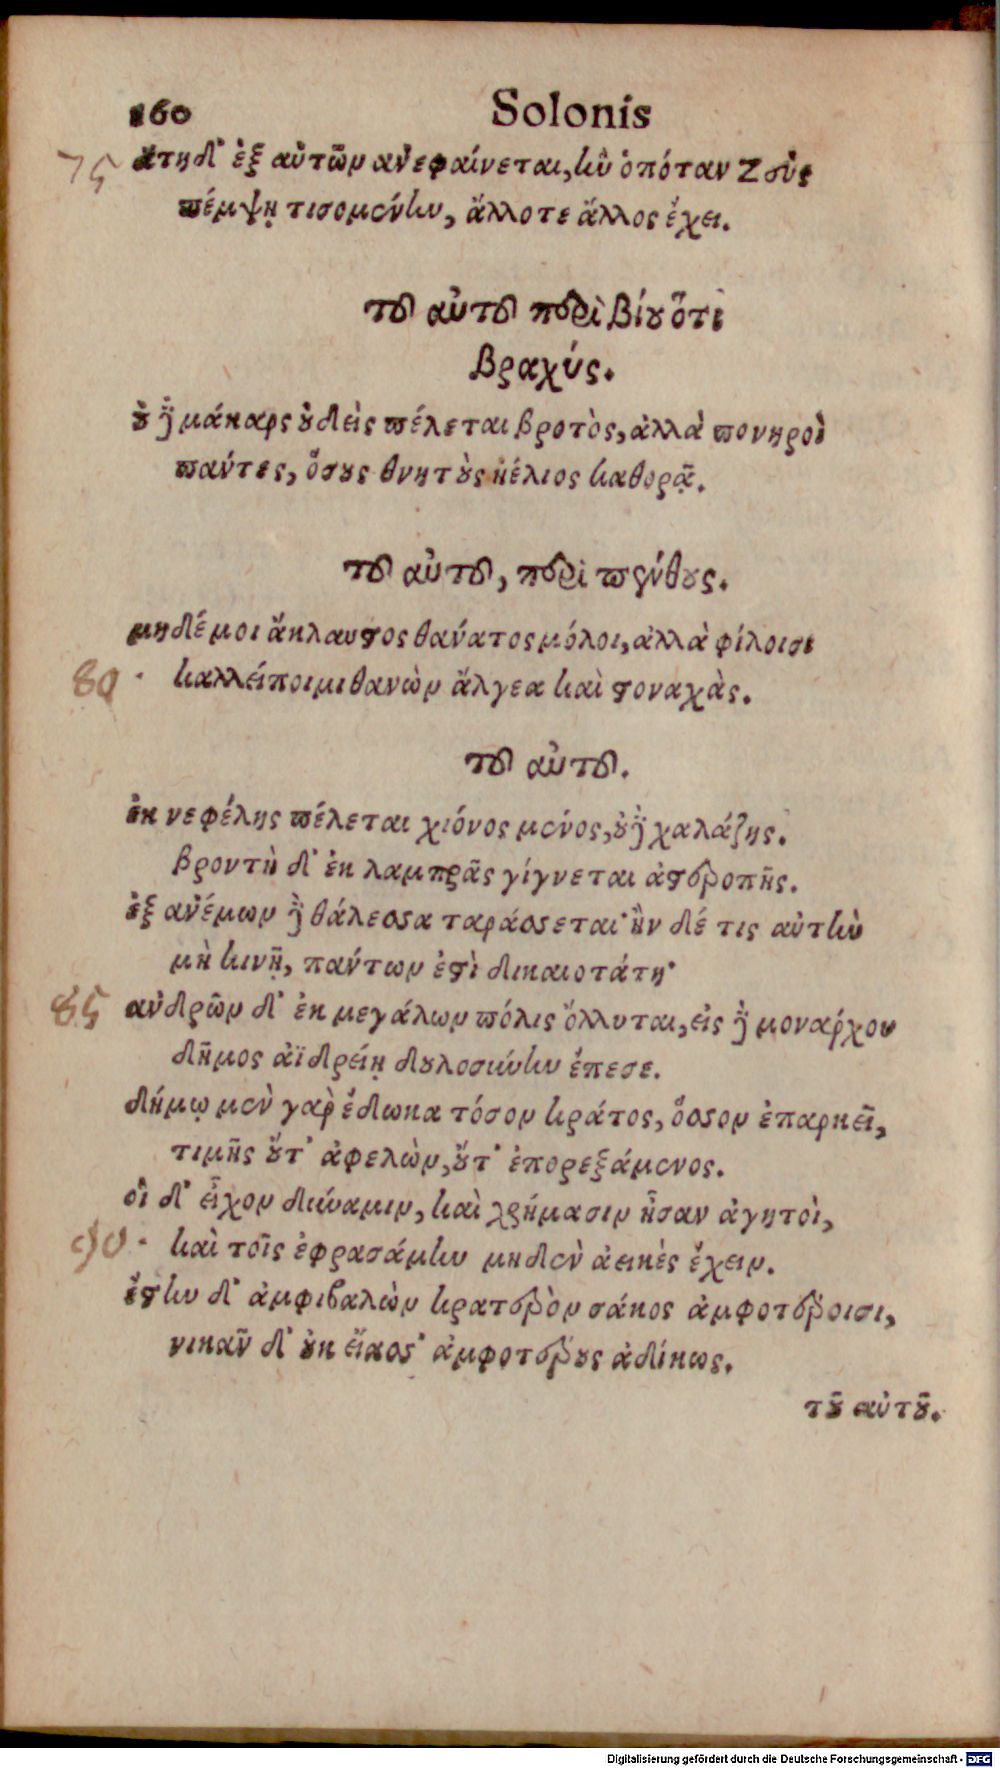 160 Solonis
75 ἄτη δ' ἐξ αὐτῶν ἀνεφαίνεται, ἣν ὁπόταν Ζεὺς
πέμψῃ τισομένην, ἄλλοτε ἄλλος ἔχει.
τοῦ αὐτοῦ περὶ βίου ὅτι
βραχύς.
οὐδὲ μάκαρς οὐδεὶς πέλεται βροτὸς, ἀλλὰ πονηροὶ
πάντες, ὅσους θνητοὺς ἠέλιος καθορᾷ.
τοῦ αὐτοῦ, περὶ πένθους.
μηδέ μοι ἄκλαυστος θάνατος μόλοι, ἀλλὰ φίλοισι
80 καλλείποιμι θανὼν ἄλγεα καὶ στοναχὰς.
τοῦ αὐτοῦ.
ἐκ νεφέλης πέλεται χιόνος μένος, οὐδὲ χαλάζης.
βροντὴ δ' ἐκ λαμπρᾶς γίγνεται ἀστεροπῆς.
ἐξ ἀνέμων δὲ θάλεσσα ταράσσεται· ἢν δέ τις αὐτὴν
μὴ κινῇ, πάντων ἐστὶ δικαιοτάτη·
85 ἀνδρῶν δ' ἐκ μεγάλων πόλις ὄλλυται, εἰς δὲ μονάρχου
δῆμος ἀϊδρείῃ δουλοσύνην ἔπεσε.
δήμῳ μὲν γὰρ ἔδωκα τόσον κράτος, ὅσσον ἐπαρκεῖ,
τιμῆς οὔτ' ἀφελὼν, οὔτ' ἐπορεξάμενος.
οἳ δ' εἶχον δύναμιν, καὶ χρήμασιν ἦσαν ἀγητοὶ,
90 καὶ τοῖς ἐφρασάμην μηδὲν ἀεικὲς ἔχειν.
ἔστην δ' ἀμφιβαλὼν κρατερὸν σάκος ἀμφοτέροισι,
νικᾶν δ' οὐκ εἴασ' ἀμφοτέρους ἀδίκως.
τοῦ αὐτοῦ.
Digitalisierung gefördert durch die Deutsche Forschungsgemeinschaft - DFG